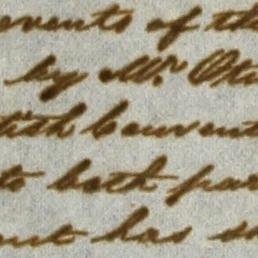 events of the
by Mr. Otw
tish Convent
to both par
ent has s